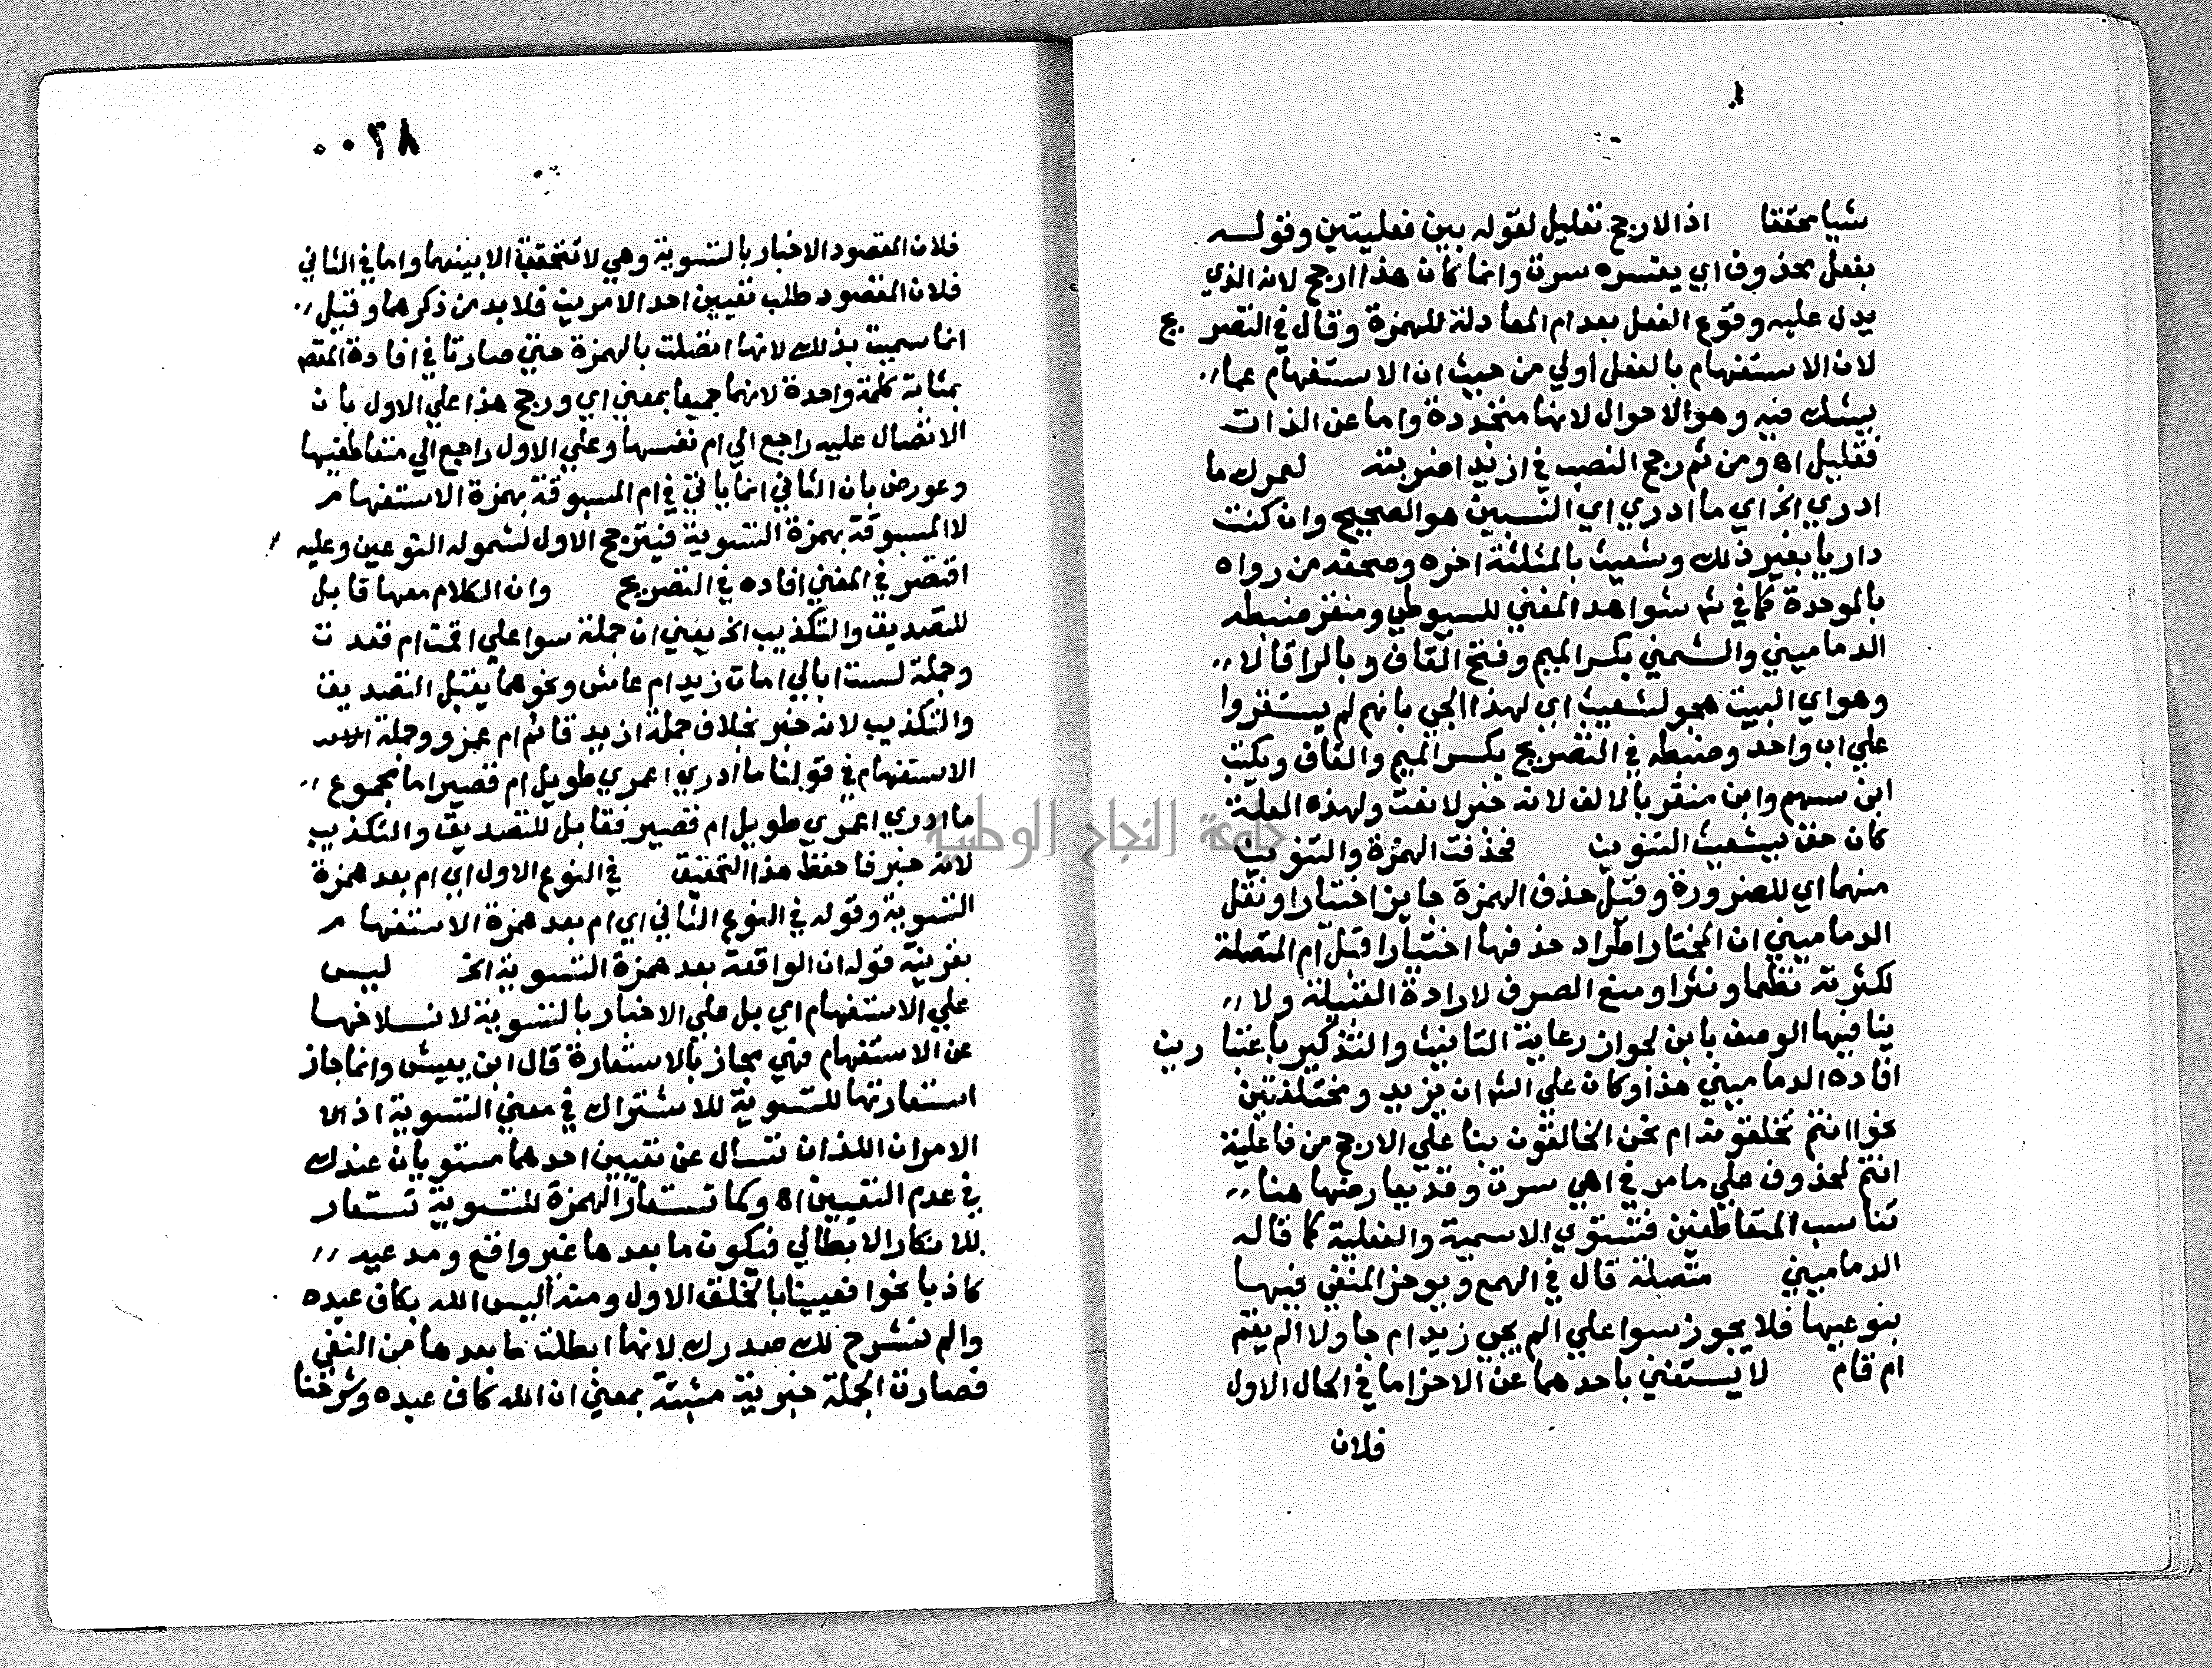 شيا محققا اذ الارجح تعليل لقوله بين فعليتين وقوله
بفعل محذوف اي يفسره سرت وانما كان هذا ارجح لان الذي
يدل عليه وقوع الفعل بعد ام المعادلة للهمزة وقال في التصريح
لان الاستفهام بالفعل أولي من حيث ان الاستفهام عما
يشك فيه وهو الاحوال لانها متجددة واما عن الذات
فقليل اه ومن ثم رجح النصب في ازيدا ضربته لعمرك ما
ادري الخ اي ما ادري اي النسبين هو الصحيح وان كنت
داريا بغير ذلك وشعيث بالمثلثة اخره وصحفه من رواه
بالموحدة كما في شواهد المغني للسيوطي ومنقر ضبطه
الدماميني والشمني بكسر الميم وفتح القاف وبالرا قالا
وهو اي البيت هجو لشعيث اي لهذا الحي بانهم لم يستقروا
علي اب واحد وضبطه في التصريح بكسر الميم والقاف ويكتب
ابن سهم وابن منقر بالالف لانه خبر لا نعت ولهذه العلة
كان حق شعيث التنوين فحذفت الهمزة والتنوين
منهما اي للضرورة وقيل حذف الهمزة جايز اختيارا ونقل
الدماميني ان المختار اطراد حذفها اختيارا قبل ام المتصلة
لكثرته نظما ونثرا ومنع الصرف لارادة القبيلة ولا
ينافيها الوصف بابن لجواز رعاية التانيث والتذكير باعتبارين
افاده الدماميني هذا وكان علي الش ان يزيد ومختلفتين
نحو اانتم تخلقونه ام نحن الخالقون بنا علي الارجح من فاعلية
انتم لمحذوف علي ما مر في اهي سرت وقد يعارضها هنا
تناسب المتعاطفين فتستوي الاسمية والفعلية كما قاله
الدماميني متصلة قال في الهمع ويوخر المنفي فيها
بنوعيها فلا يجوز سوا علي الم يجي زيد ام جا ولا الم يقم
ام قام لا يستغني باحدهما عن الاخر اما في الحال الاول
فلان
٠٠٣٨
فلان المقصود الاخبار بالتسوية وهي لا تتحقق الا بينهما واما في الثاني
فلان المقصود طلب تعيين احد الامرين فلا بد من ذكرهما وقيل
انما سميت بذلك لانها اتصلت بالهمزة حتي صارتا في افادة المقصود
بمثابة كلمة واحدة لانهما جميعا بمعني اي ورجح هذا علي الاول بان
الاتصال عليه راجع الي ام نفسها وعلي الاول راجع الي متعاطفيها
وعورض بان الثاني انما ياتي في ام المسبوقة بهمزة الاستفهام
لا المسبوقة بهمزة التسوية فيترجح الاول لشموله النوعين وعليه
اقتصر في المغني افاده في التصريح وان الكلام معها قابل
للتصديق والتكذيب الخ يعني ان جملة سوا علي اقمت ام قعدت
وجملة لست ابالي امات زيد ام عاش ونحوهما يقبل التصديق
والتكذيب لانه خبر بخلاف جملة ازيد قائم ام عمرو وجملة
الاستفهام في قولنا ما ادري اعمري طويل ام قصير اما مجموع
ما ادري اعمري طويل ام قصير فقابل للتصديق والتكذيب
لانه خبر فاحفظ هذا التحقيق في النوع الاول اي ام بعد همزة
التسوية وقوله في النوع الثاني اي ام بعد همزة الاستفهام
بقرينة قوله ان الواقعة بعد همزة التسوية الخ ليس
علي الاستفهام اي بل علي الاخبار بالتسوية لانسلاخها
عن الاستفهام فهي مجاز بالاستعارة قال ابن يعيش وانما جاز
استعارتها للتسوية للاشتراك في معني التسوية اذ
الامران اللذان تسال عن تعيين احدهما مستويان عندك
في عدم التعيين اه وكما تستعار الهمزة للتسوية تستعار
للانكار الابطالي فيكون ما بعدها غير واقع ومدعيه
كاذبا نحو افعيينا بالخلق الاول ومنه أليس الله بكاف عبده
والم نشرح لك صدرك لانها ابطلت ما بعدها من النفي
فصارت الجملة خبرية مثبتة بمعني ان الله كاف عبده وشرحنا
جامعة النجاح الوطنية